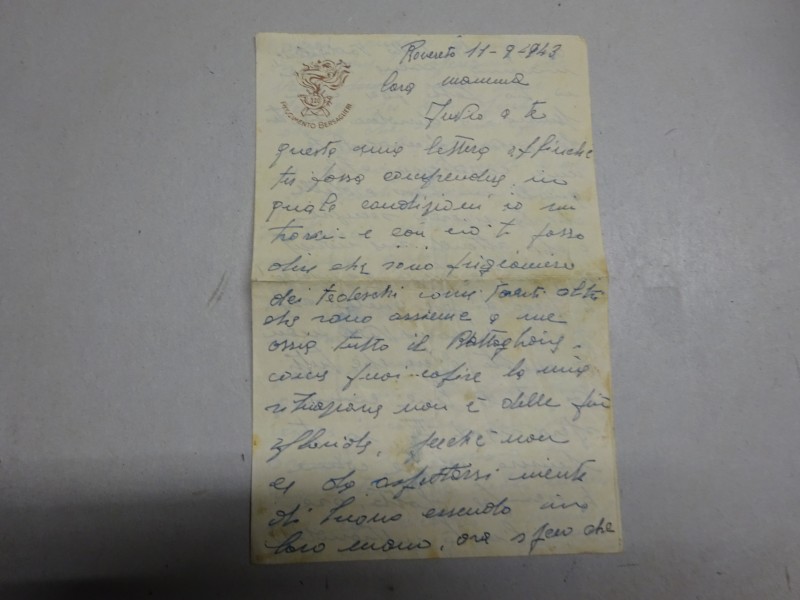 Rovereto 11-9-943
REGGIMENTO BERSAGLIERI
Cara mamma
a te
questa mia lettera affinche
tu possa comprendere in
quale condizioni io mi
trovi e con ciò ti posso
dire che sono prigioniero
dei tedeschi come tanti altri
che sono assieme a me
ossia tutto il Battaglione
come puoi capire la mia
situazione non è delle più
floride, perchè non
c'è da aspettarsi niente
di buono essendo in
loro mano, ora spero che